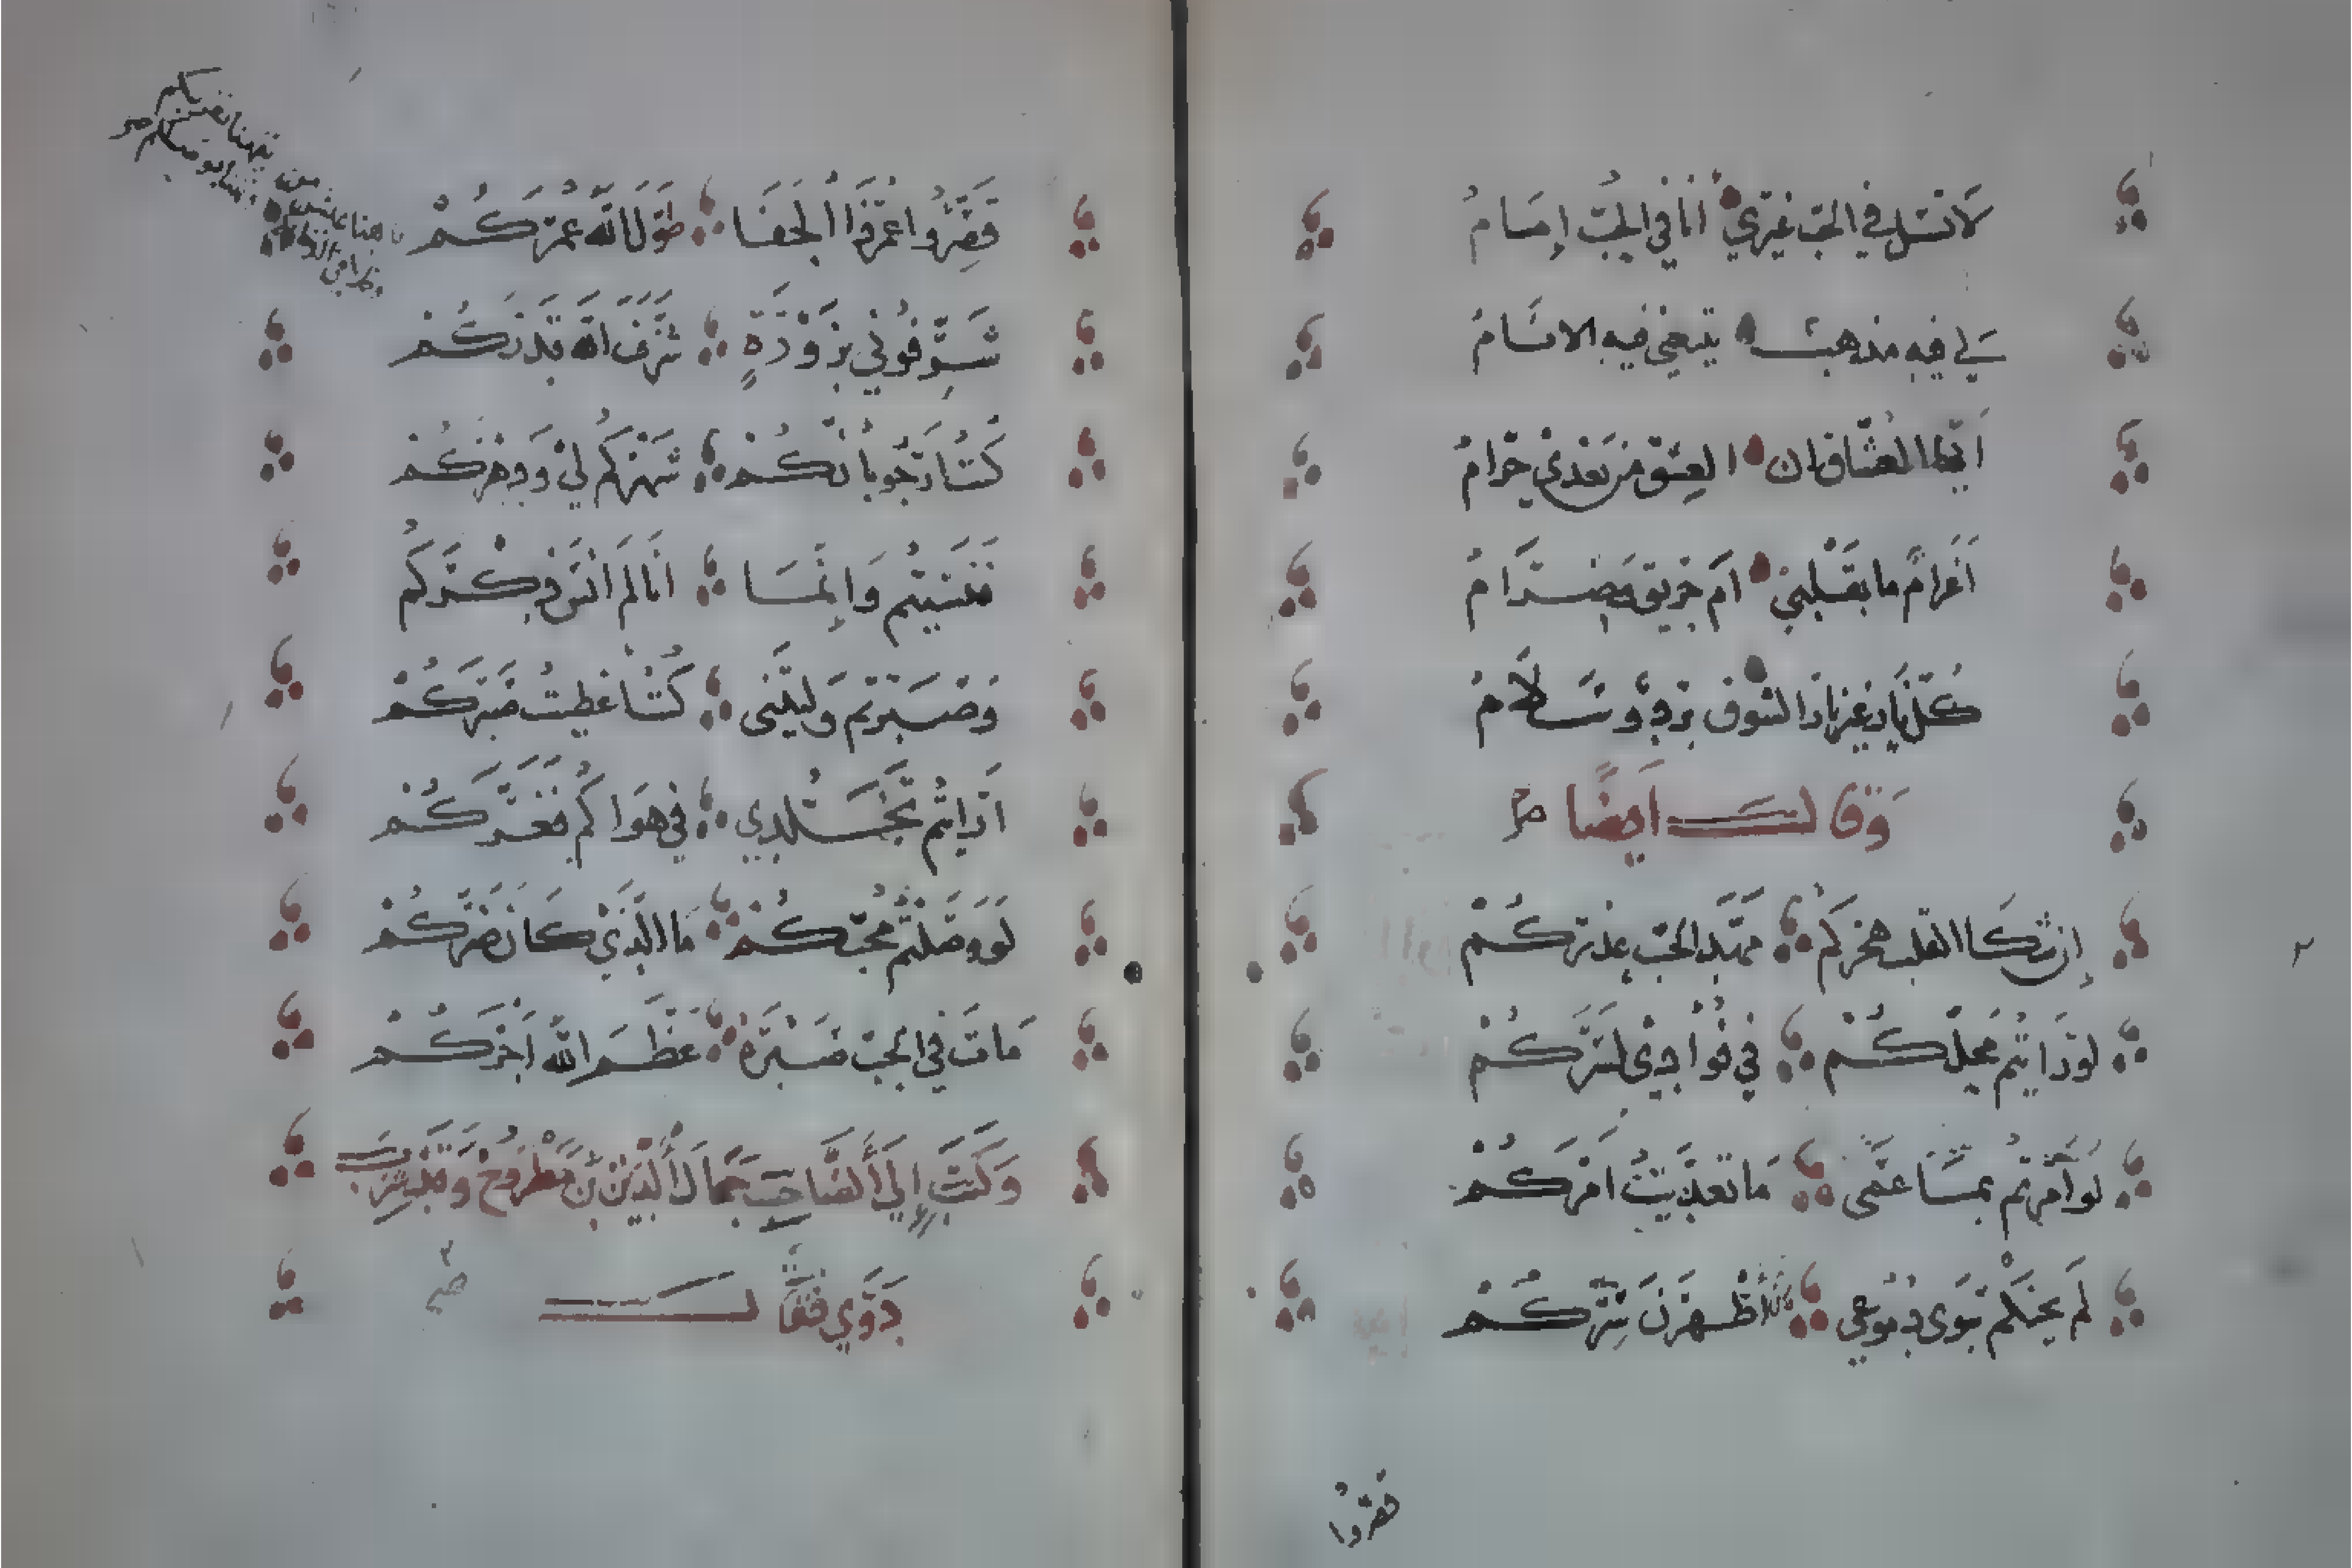 لَا تَسَل في الحبّ غيري أنا في الحُبّ إمامُ
لي فيه مذهب يتبعني فيه الانامُ
أيّها العشّاق ان العشق من بعدي حرامُ
أغرامٌ ما بقلبي أم حريق وضرامُ
كلّ نار غير نار الشوق بردٌ وسلامٌ
وَقَالَ أَيضًا
إن شكا القلب هجركُم مهّد الحبّ عذركُمْ
لو رَأيتم محلّكُمْ في فُؤادي لسَرَّكُمْ
لو أمرتم بمَا عسَى مَا تعدّيتُ أمرَكُمْ
لم يخنكم سوى دموعي أظهرنَ سِرَّكُمْ
فقصّروا
قَصِّرُوا عُمْرَ ذا الجَفَا طوّل الله عُمرَكُمْ
شَرِّفُوني بزَوْرَةٍ شرَّفَ الله قَدْرَكُمْ
كُنتُ أرجُو بأنّكُمْ شهركُم لي وَدهركُم
فنَسيتم وَإنّمَا أنَا لم أنسَ ذكركُم
وَصَبَرتم وَليتني كُنتُ أعطيتُ صَبركُمْ
أرأيتم تجَلّدي في هَوَاكُم فغَرَّكُمْ
لَو وَصَلْتُم مُحبّكُمْ مَا الَّذي كان ضَرَّكُمْ
مَاتَ في الحبّ صَبْرَهُ عَظَّمَ الله أَجْرَكُمْ
وَكَتَبَ إِلَى الصَّاحِبِ جَمَالِ الدِّينِ بْنِ مَطْرُوحٍ وَقَد شَرِبَ
دَوَاءً فَقَالَ